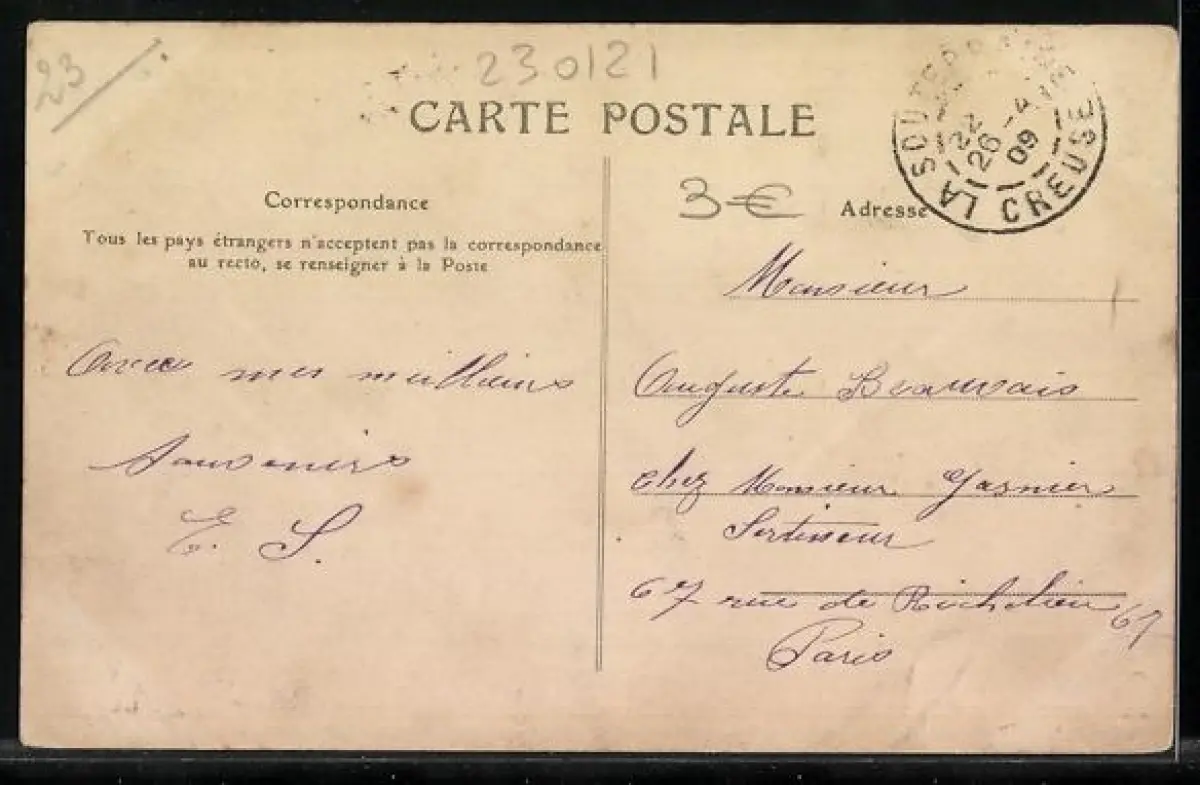 23
230121
CARTE POSTALE
LA SOUTERRAINE
CREUSE
22
26-4
09
Correspondance
Tous les pays étrangers n'acceptent pas la correspondance
au recto, se renseigner à la Poste
3€
Adresse
Avec mes meilleurs
souvenirs
E. S.
Monsieur
Auguste Beauvais
chez Monsieur Gasnier
Sertisseur
67 rue de Richelieu 67
Paris